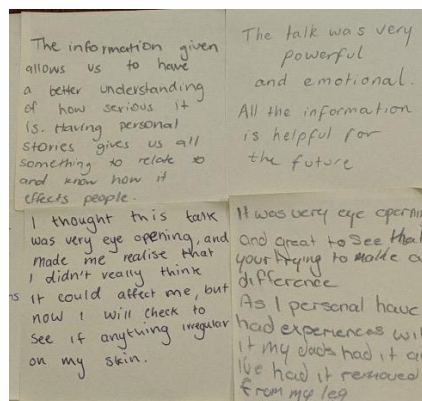 The information given
allows us to have
a better understanding
of how serious it
is. Having personal
stories gives us all
something to relate to
and know how it
effects people.
The talk was very
powerful
and emotional.
All the information
is helpful for
the future
I thought this talk
was very eye opening, and
made me realise that
I didn't really think
it could affect me, but
now I will check to
see if anything irregular
on my skin.
It was very eye
and great to see
your trying to make a
difference
As I personal have
had experiences
it my dads had it
I've had it removed
from my leg